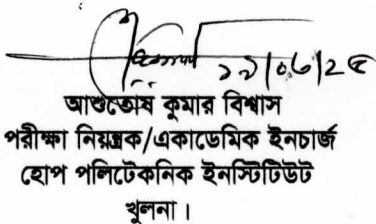 ১৯/০৬/২৫
আশুতোষ কুমার বিশ্বাস
পরীক্ষা নিয়ন্ত্রক/একাডেমিক ইনচার্জ
হোপ পলিটেকনিক ইনস্টিটিউট
খুলনা।